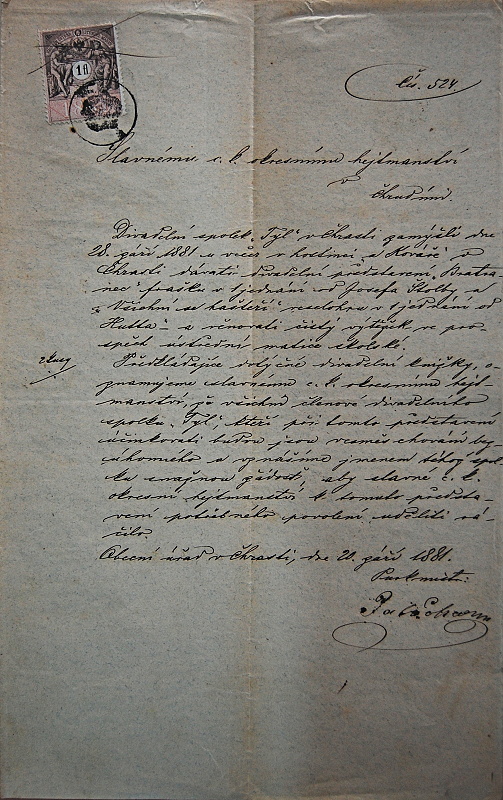 1 fl
Čís. 524
Slavnému c. k. okresnímu hejtmanství
v
Chrudimi.
Divadelní spolek „Tyl“ v Chrasti zamýšlí dne
28. září 1881 u večer v hostinci „u Kovářů“ v
Chrasti dávati divadelní představení, „Bratra-
nec“ fraška v 1 jednání od Josefa Štolby a
„Všichni se hašteří“ veselohra v 1 jednání od
Hutta – a věnovati čistý výtěžek ve pro-
spěch ústřední matice školské.
2 kusy
Předkládajíce dotyčné divadelní knížky, o-
znamujeme slavnému c. k. okresnímu hejt-
manství, že všichni členové divadelního
spolku „Tyl“, kteří při tomto představení
účinkovati budou jsou vesměs chování bez-
úhonného a vznášíme jmenem téhož spol-
ku snažnou žádost, aby slavné c. k.
okresní hejtmanství k tomuto předsta-
vení potřebného povolení uděliti rá-
čilo.
Obecní úřad v Chrasti, dne 20. září 1881.
Purkmistr: